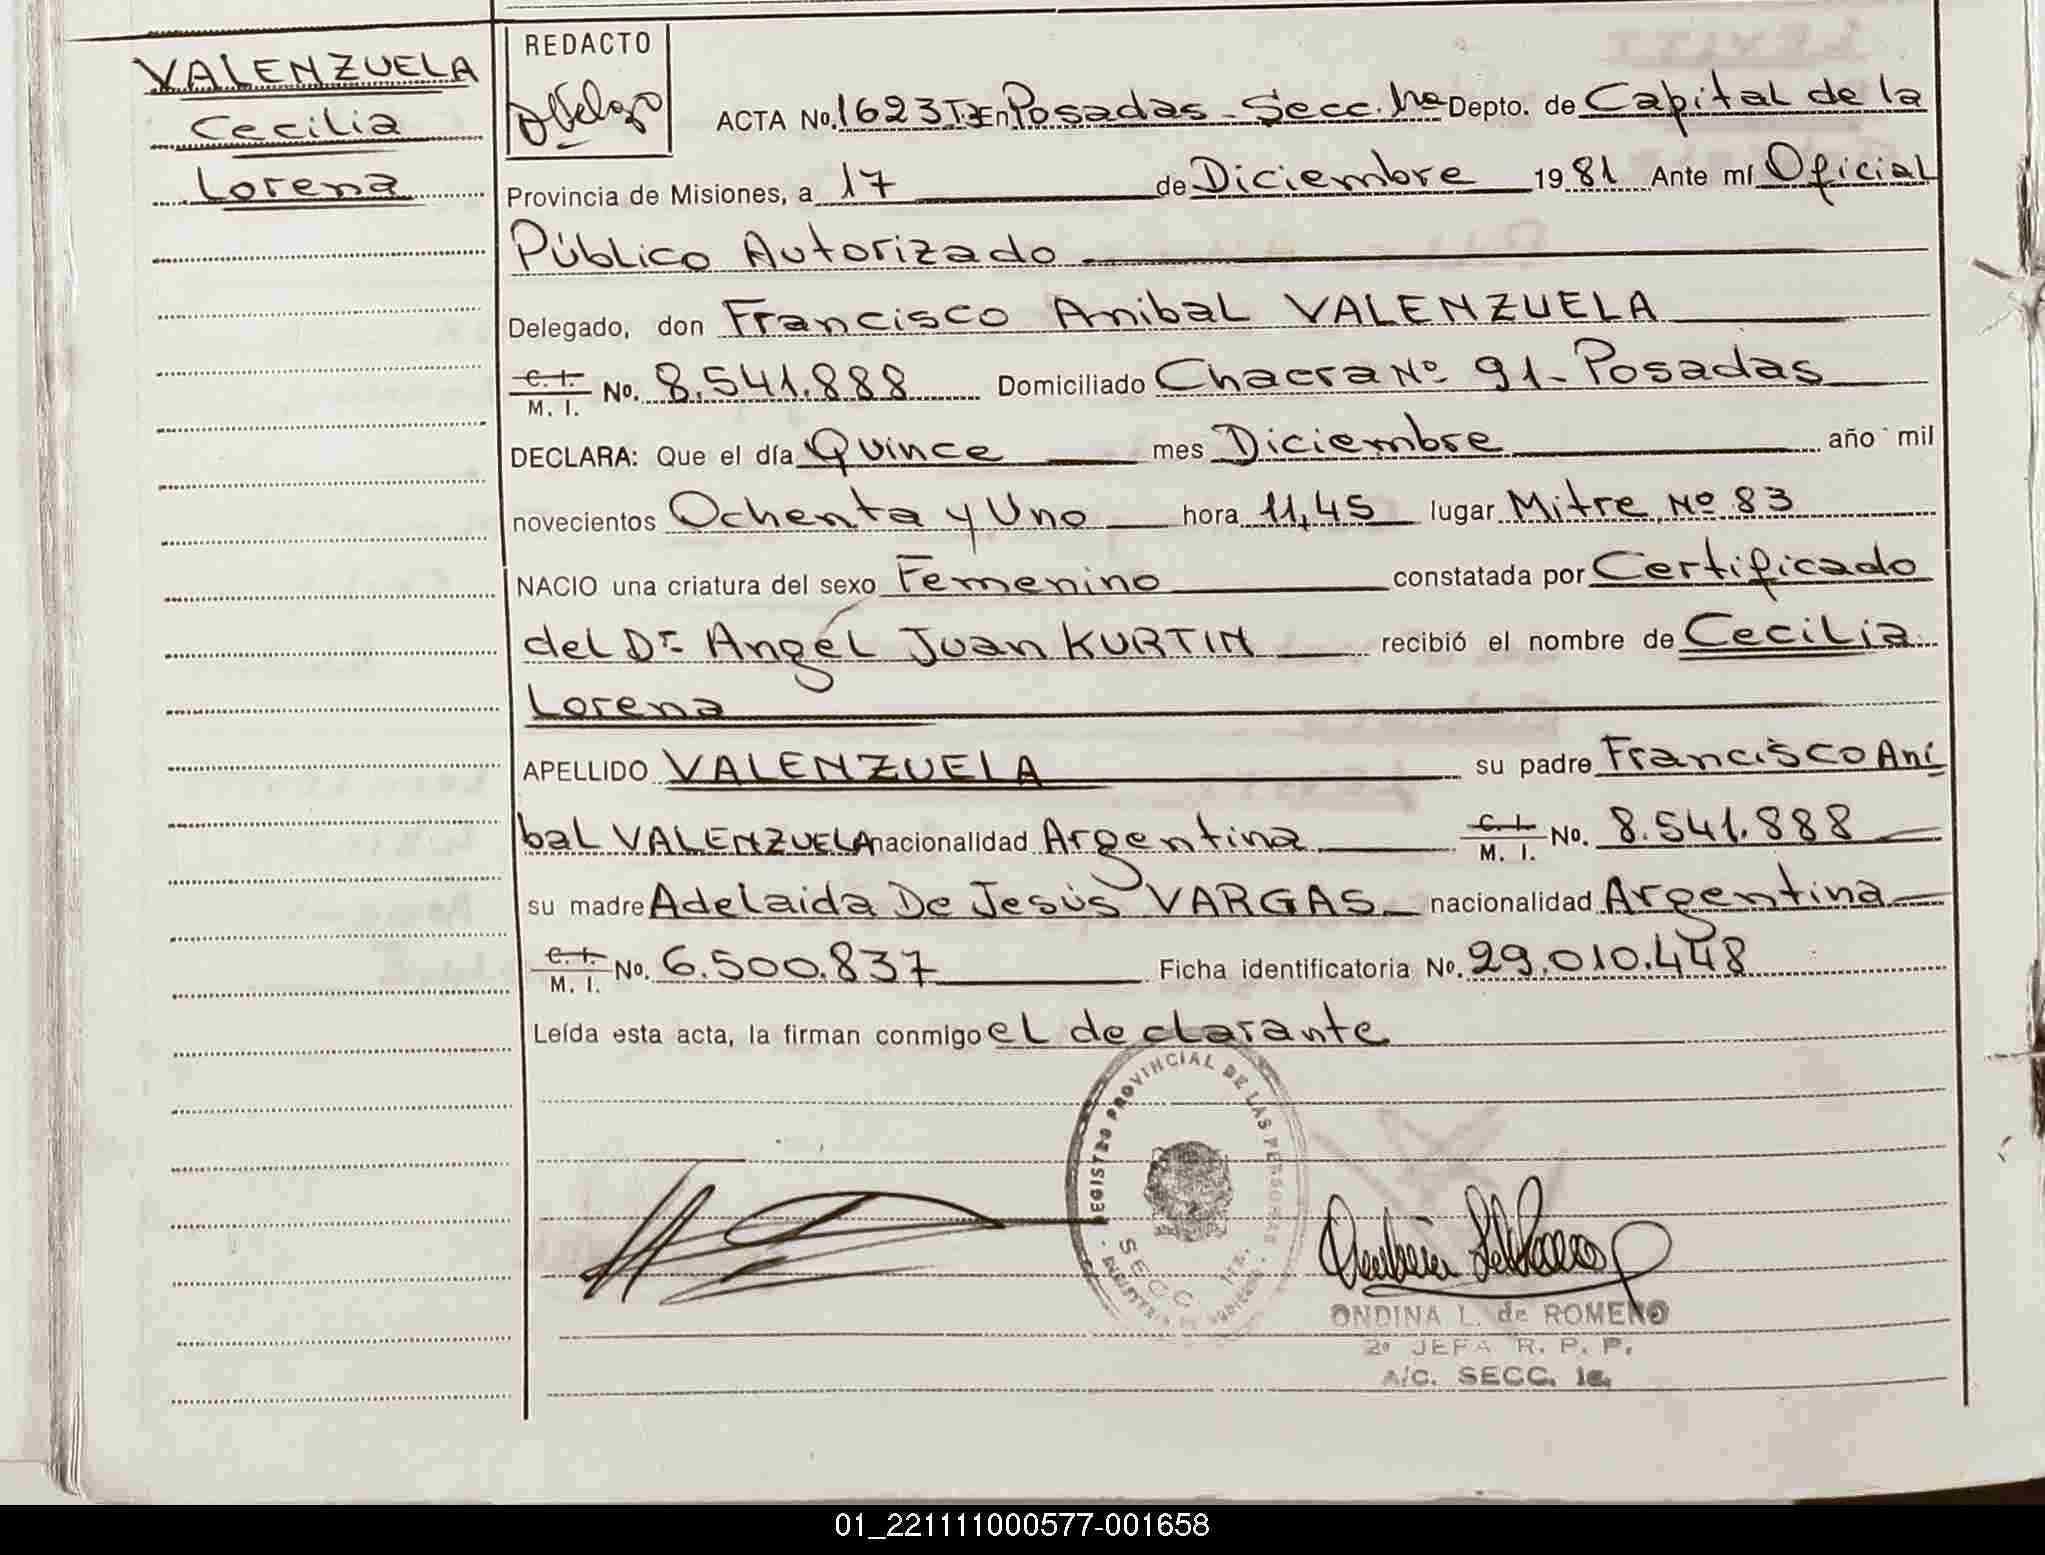 VALENZUELA
Cecilia
Lorena
REDACTO
ACTA No. 1623 En Posadas - Secc. 1ra Depto. de Capital de la
Provincia de Misiones, a 17 de Diciembre 1981 Ante mí Oficial
Público Autorizado
Delegado, don Francisco Anibal VALENZUELA
C. I. M. I. No. 8.541.888 Domiciliado Chacra Nº 91 - Posadas
DECLARA: Que el día Quince mes Diciembre año mil
novecientos Ochenta y Uno hora 11,45 lugar Mitre Nº 83
NACIO una criatura del sexo Femenino constatada por Certificado
del Dr. Angel Juan KURTIN recibió el nombre de Cecilia
Lorena
APELLIDO VALENZUELA su padre Francisco Ani
bal VALENZUELA nacionalidad Argentina C. I. M. I. No. 8.541.888
su madre Adelaida De Jesús VARGAS nacionalidad Argentina
C. I. M. I. No. 6.500.837 Ficha identificatoria No. 29.010.448
Leída esta acta, la firman conmigo el declarante
REGISTRO PROVINCIAL DE LAS PERSONAS
SECC. 1ra.
ONDINA L. de ROMERO
2º JEFA R. P. P.
A/C. SECC. 1a.
01_221111000577-001658